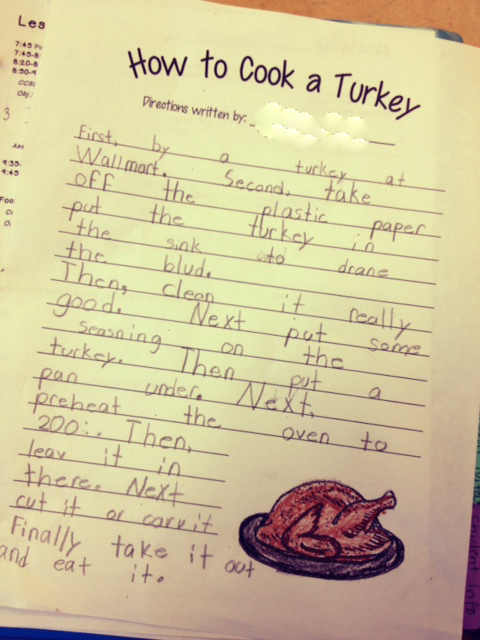 Les
7:45
7:45-8
8:20-8
8:50-9
3
9:35-
9:45
Foo
How to Cook a Turkey
Directions written by:
First, by a turkey at
Wallmart. Second, take
off the plastic paper
put the turkey in
the sink to drane
the blud.
Then, clean it really
good. Next put some
seasning on the
turkey. Then put a
pan under. Next,
preheat the oven to
200:. Then,
leav it in
there. Next
cut it or carv it
Finally take it out
and eat it.